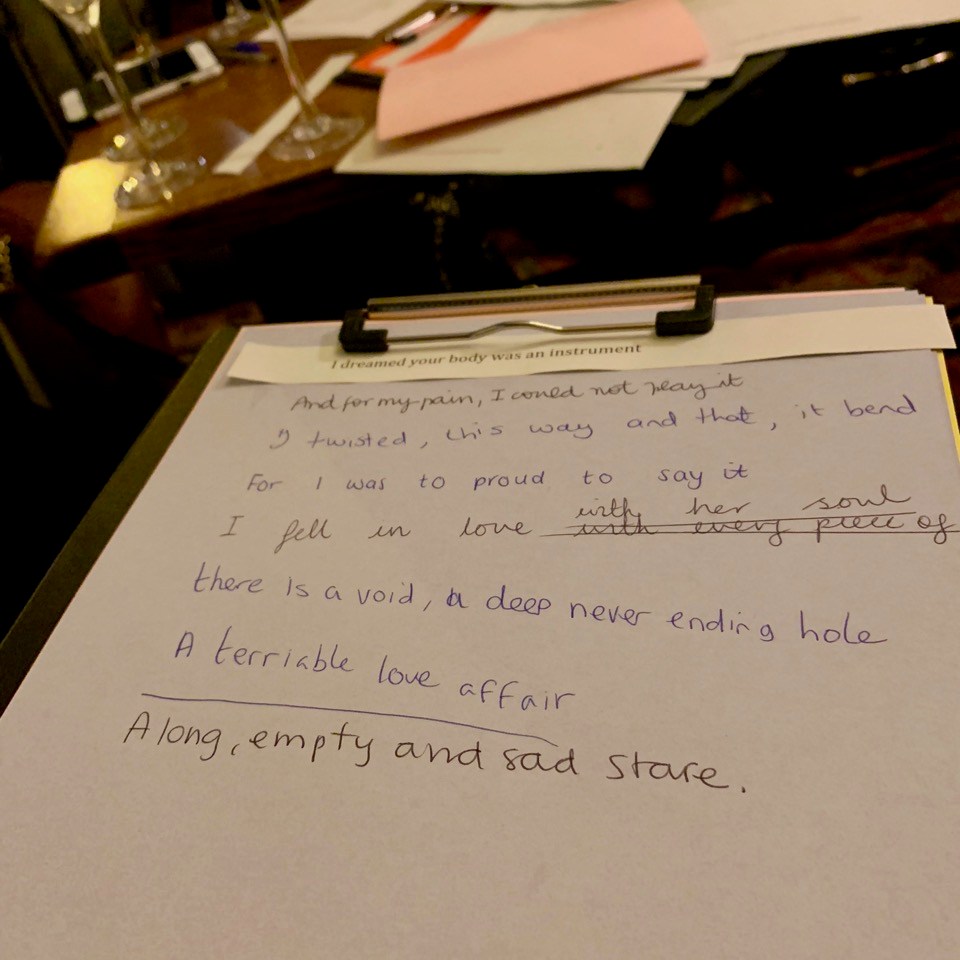 I dreamed your body was an instrument
And for my pain, I could not play it
I twisted, this way and that, it bend
For I was to proud to say it
with her soul
I fell in love with every piece of
there is a void, a deep never ending hole
A terriable love affair
A long, empty and sad stare.